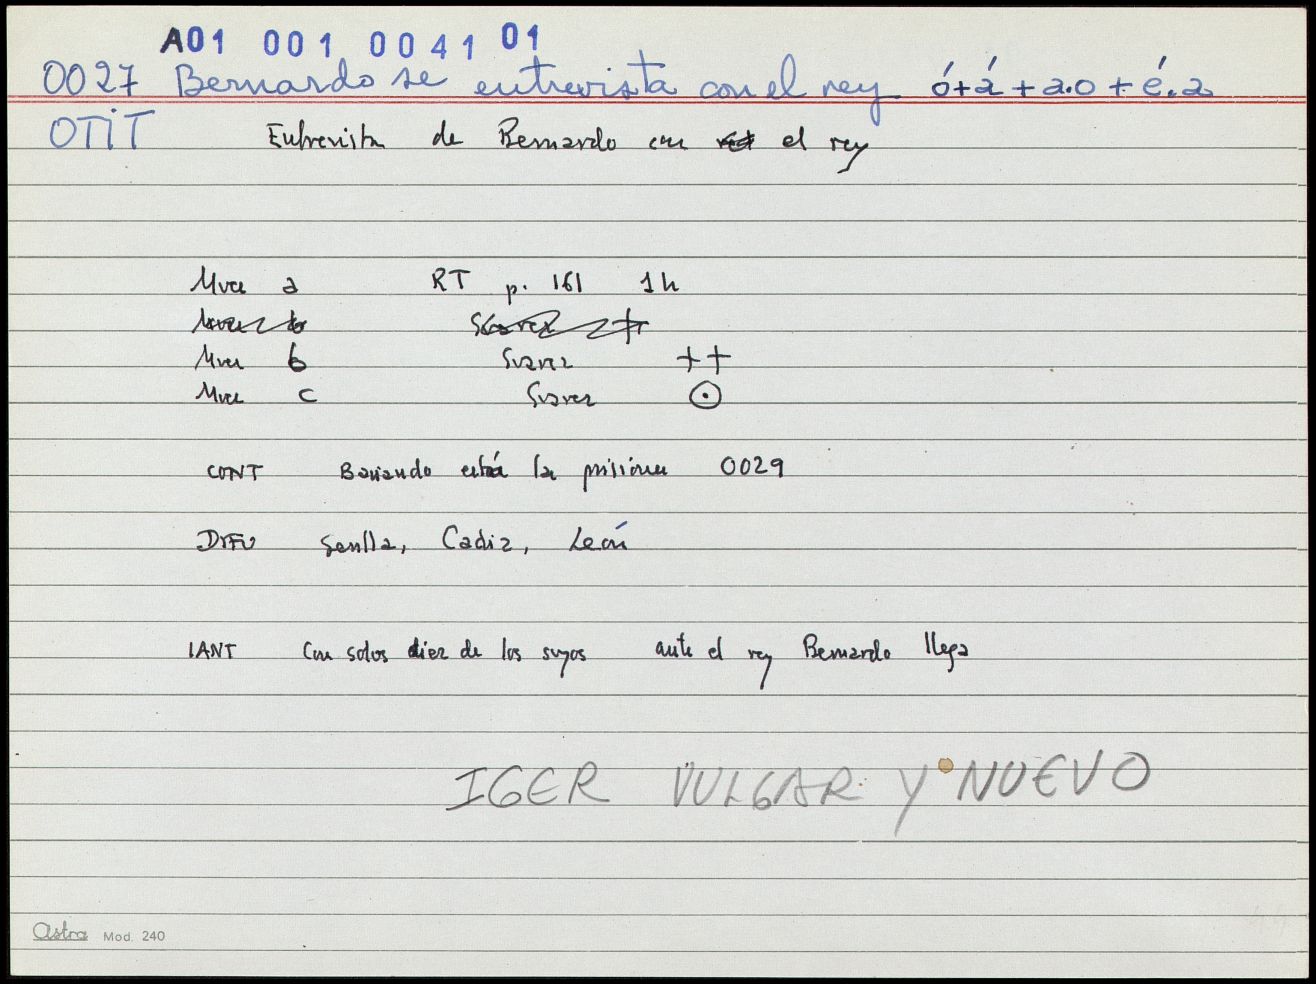 A01 001 0041 01
0027 Bernardo se entrevista con el rey ó+á + a.o + é.a
OTIT Entrevista de Bernardo con el rey
Mvce a RT p. 161 1h
Mvce b Suarez ++
Mvce c Suarez ⊙
CONT Bernardo está la prisión 0029
DIFU Sevilla, Cadiz, León
IANT Con solos diez de los suyos ante el rey Bernardo llega
IGER VULGAR Y NUEVO
Astra Mod. 240